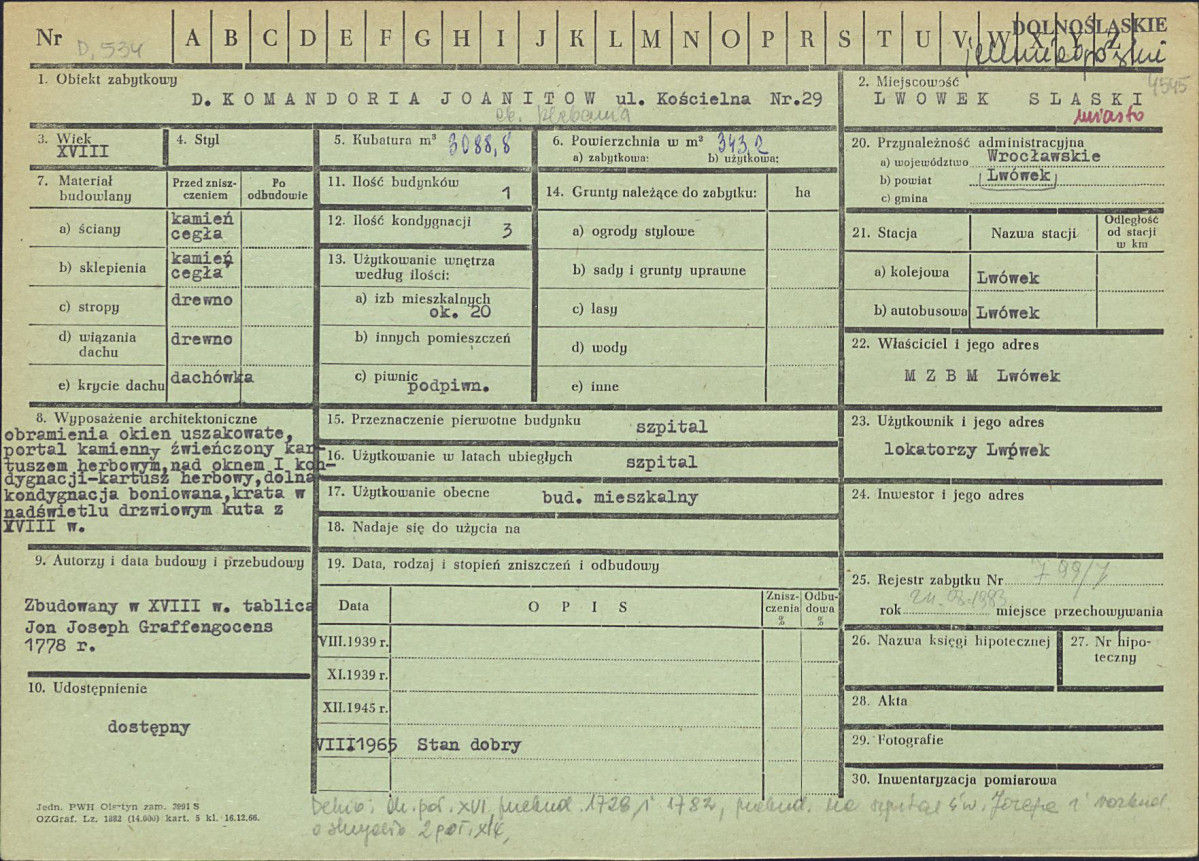 Nr D. 534 A B C D E F G H I J K L M N O P R S T U V W X Y Z
DOLNOŚLĄSKIE
4545
1. Obiekt zabytkowy
D. KOMANDORIA JOANITOW ul. Kościelna Nr.29
ob. plebania
2. Miejscowość
LWOWEK SLASKI
miasto
3. Wiek
XVIII
4. Styl
5. Kubatura m³ 3088,8
6. Powierzchnia w m³ 343,2
a) zabytkowa: b) użytkowa:
20. Przynależność administracyjna
a) województwo Wrocławskie
b) powiat Lwówek
c) gmina
7. Materiał budowlany
Przed znisz-
czeniem
Po
odbudowie
a) ściany kamień
cegła
b) sklepienia kamień
cegła
c) stropy drewno
d) wiązania drewno
dachu
e) krycie dachu dachówka
11. Ilość budynków 1
12. Ilość kondygnacji 3
13. Użytkowanie wnętrza
według ilości:
a) izb mieszkalnych
ok. 20
b) innych pomieszczeń
c) piwnic
podpiwn.
14. Grunty należące do zabytku: ha
a) ogrody stylowe
b) sady i grunty uprawne
c) lasy
d) wody
e) inne
21. Stacja Nazwa stacji
Odległość
od stacji
w km
a) kolejowa Lwówek
b) autobusowa Lwówek
22. Właściciel i jego adres
M Z B M Lwówek
8. Wyposażenie architektoniczne
obramienia okien uszakowate,
portal kamienny źwieńczony kar-
tuszem herbowym,nad oknem I kon-
dygnacji-kartusz herbowy,dolna
kondygnacja boniowana,krata w
nadświetlu drzwiowym kuta z
XVIII w.
15. Przeznaczenie pierwotne budynku szpital
16. Użytkowanie w latach ubiegłych szpital
17. Użytkowanie obecne bud. mieszkalny
18. Nadaje się do użycia na
23. Użytkownik i jego adres
lokatorzy Lwówek
24. Inwestor i jego adres
9. Autorzy i data budowy i przebudowy
Zbudowany w XVIII w. tablica
Jon Joseph Graffengocens
1778 r.
10. Udostępnienie
dostępny
19. Data, rodzaj i stopień zniszczeń i odbudowy
Data O P I S
Znisz-
czenia
%
Odbu-
dowa
%
VIII.1939 r.
XI.1939 r.
XII.1945 r.
VIII1965 Stan dobry
25. Rejestr zabytku Nr 799/J
rok 24.08.1983 miejsce przechowywania
26. Nazwa księgi hipotecznej
27. Nr hipo-
teczny
28. Akta
29. Fotografie
30. Inwentaryzacja pomiarowa
Jedn. PWH Olsztyn zam. 3991 S
OZGraf. Lz. 1882 (14.000) kart. 5 kl. 16.12.66.
Dehio: poł. XVI, przebud. 1728 i 1782, przebud. na szpital św. Józefa i rozbud.
o skrzydło 2 poł. XIX,